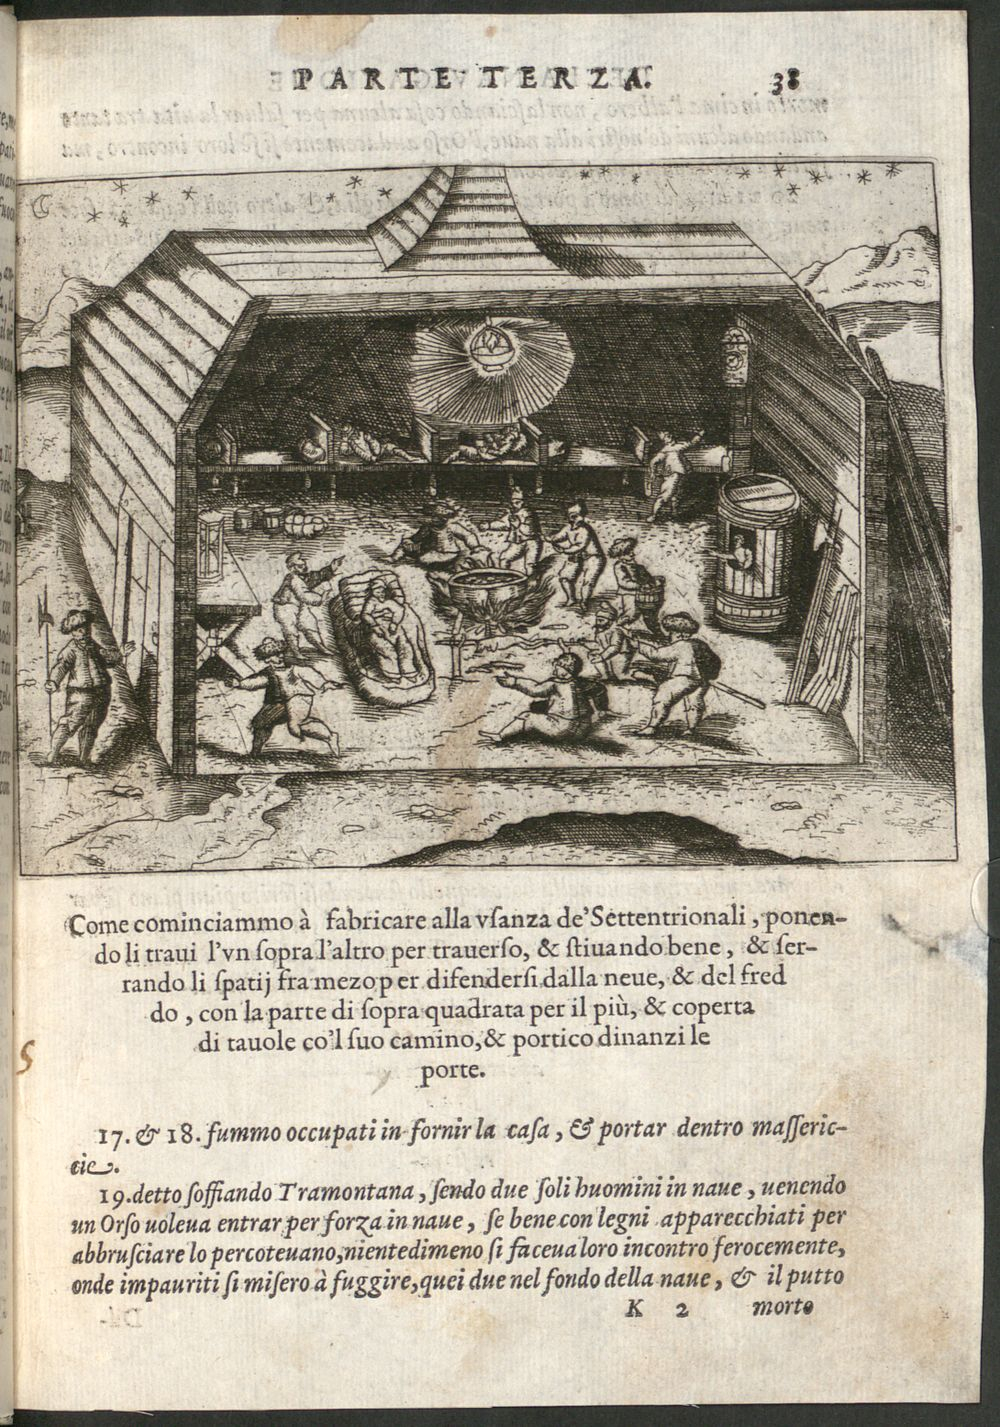 PARTE TERZA. 38
Come cominciammo à fabricare alla vſanza de'Settentrionali, ponen-
do li traui l'vn ſopra l'altro per trauerſo, & ſtiuando bene, & ſer-
rando li ſpatij fra mezo p er difenderſi dalla neue, & del fred
do, con la parte di ſopra quadrata per il più, & coperta
di tauole co'l ſuo camino, & portico dinanzi le
porte.
17. & 18. fummo occupati in fornir la caſa, & portar dentro maſſeric-
cie.
19. detto ſoffiando Tramontana, ſendo due ſoli huomini in naue, uenendo
un Orſo uoleua entrar per forza in naue, ſe bene con legni apparecchiati per
abbruſciare lo percoteuano, nientedimeno ſi faceua loro incontro ferocemente,
onde impauriti ſi miſero à fuggire, quei due nel fondo della naue, & il putto
K 2 morto